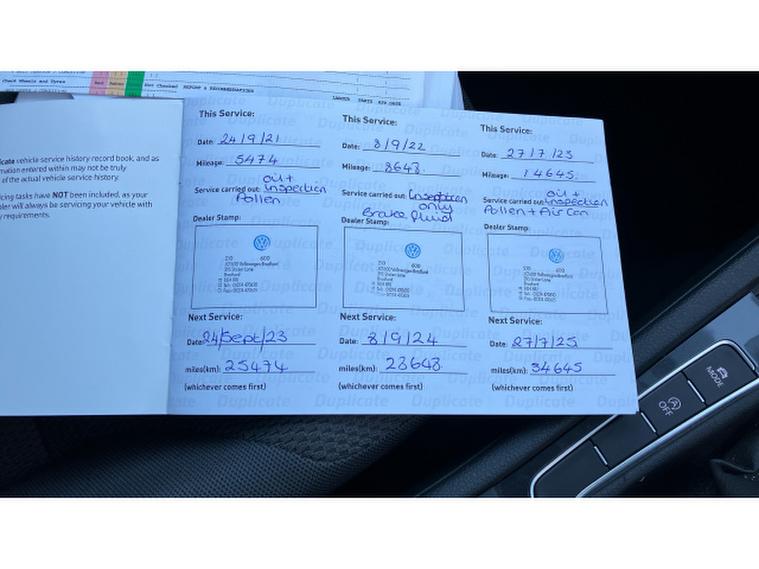 Check Wheels and Tyres
Not Checked REPORT & RECOMMENDATIONS
LABOUR PARTS
icate vehicle service history record book, and as
mation entered within may not be truly
of the actual vehicle service history.
icing tasks have NOT been included, as your
ler will always be servicing your vehicle with
y requirements.
Duplicate Duplicate Duplicate
This Service:
Date: 24/9/21
Mileage: 5474
Service carried out: oil + Inspection
Pollen
Dealer Stamp:
210 600
Next Service:
Date: 24/Sept/23
miles(km): 25474
(whichever comes first)
This Service:
Date: 8/9/22
Mileage: 8648
Service carried out: Inspection
only
Brake fluid
Dealer Stamp:
210 600
Next Service:
Date: 8/9/24
miles(km): 28648
(whichever comes first)
This Service:
Date: 27/7/23
Mileage: 14645
Service carried out: oil + Inspection
Pollen + Air Con
Dealer Stamp:
210 600
Next Service:
Date: 27/7/25
miles(km): 34645
(whichever comes first)
Duplicate Duplicate Duplicate
MODE
A
OFF